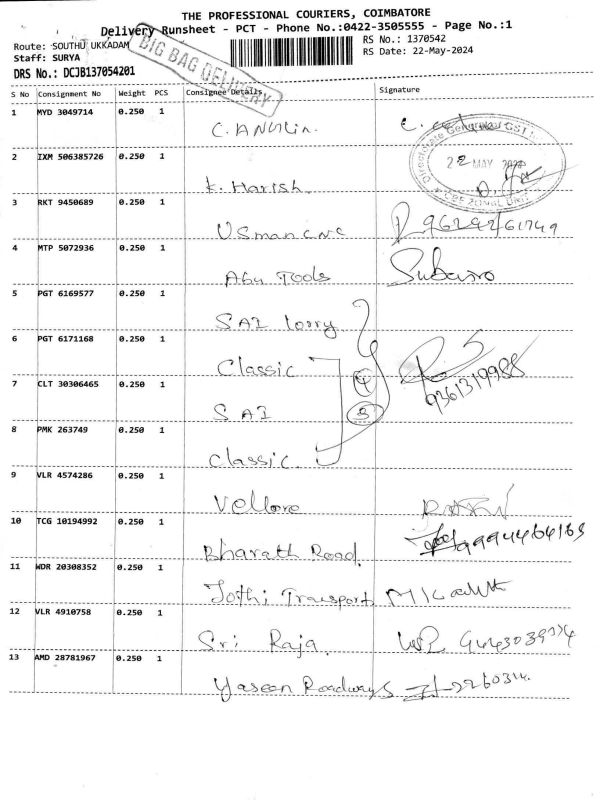 THE PROFESSIONAL COURIERS, COIMBATORE
Delivery Runsheet - PCT - Phone No.:0422-3505555 - Page No.:1
Route: SOUTHU UKKADAM
RS No.: 1370542
Staff: SURYA
RS Date: 22-May-2024
BIG BAG DELIVERY
DRS No.: DCJB137054201
S No Consignment No Weight PCS Consignee Details Signature
1 MYD 3049714 0.250 1
2 IXM 506385726 0.250 1
22 MAY
K. Harish.
3 RKT 9450689 0.250 1
Usman CNC
4 MTP 5072936 0.250 1
Abu Tools
5 PGT 6169577 0.250 1
SAI lorry
6 PGT 6171168 0.250 1
Classic 4 9361319988
7 CLT 30306465 0.250 1
SAI 3
8 PMK 263749 0.250 1
Classic.
9 VLR 4574286 0.250 1
Vellore
10 TCG 10194992 0.250 1
Bharath Road.
11 WDR 20308352 0.250 1
Jothi Transport
12 VLR 4910758 0.250 1
Sri Raja.
13 AMD 28781967 0.250 1
Yaseen Roadways